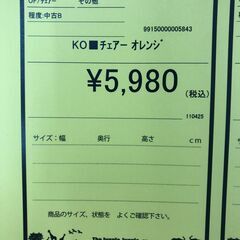 OFﾌﾁｪｱｰ その他
程度:中古B
99150000005843
KO■チェアー オレンジ
¥5,980
(税込)
110425
サイズ:幅 奥行 高さ cm
商品のサイズ、状態を よくご確認下さい。